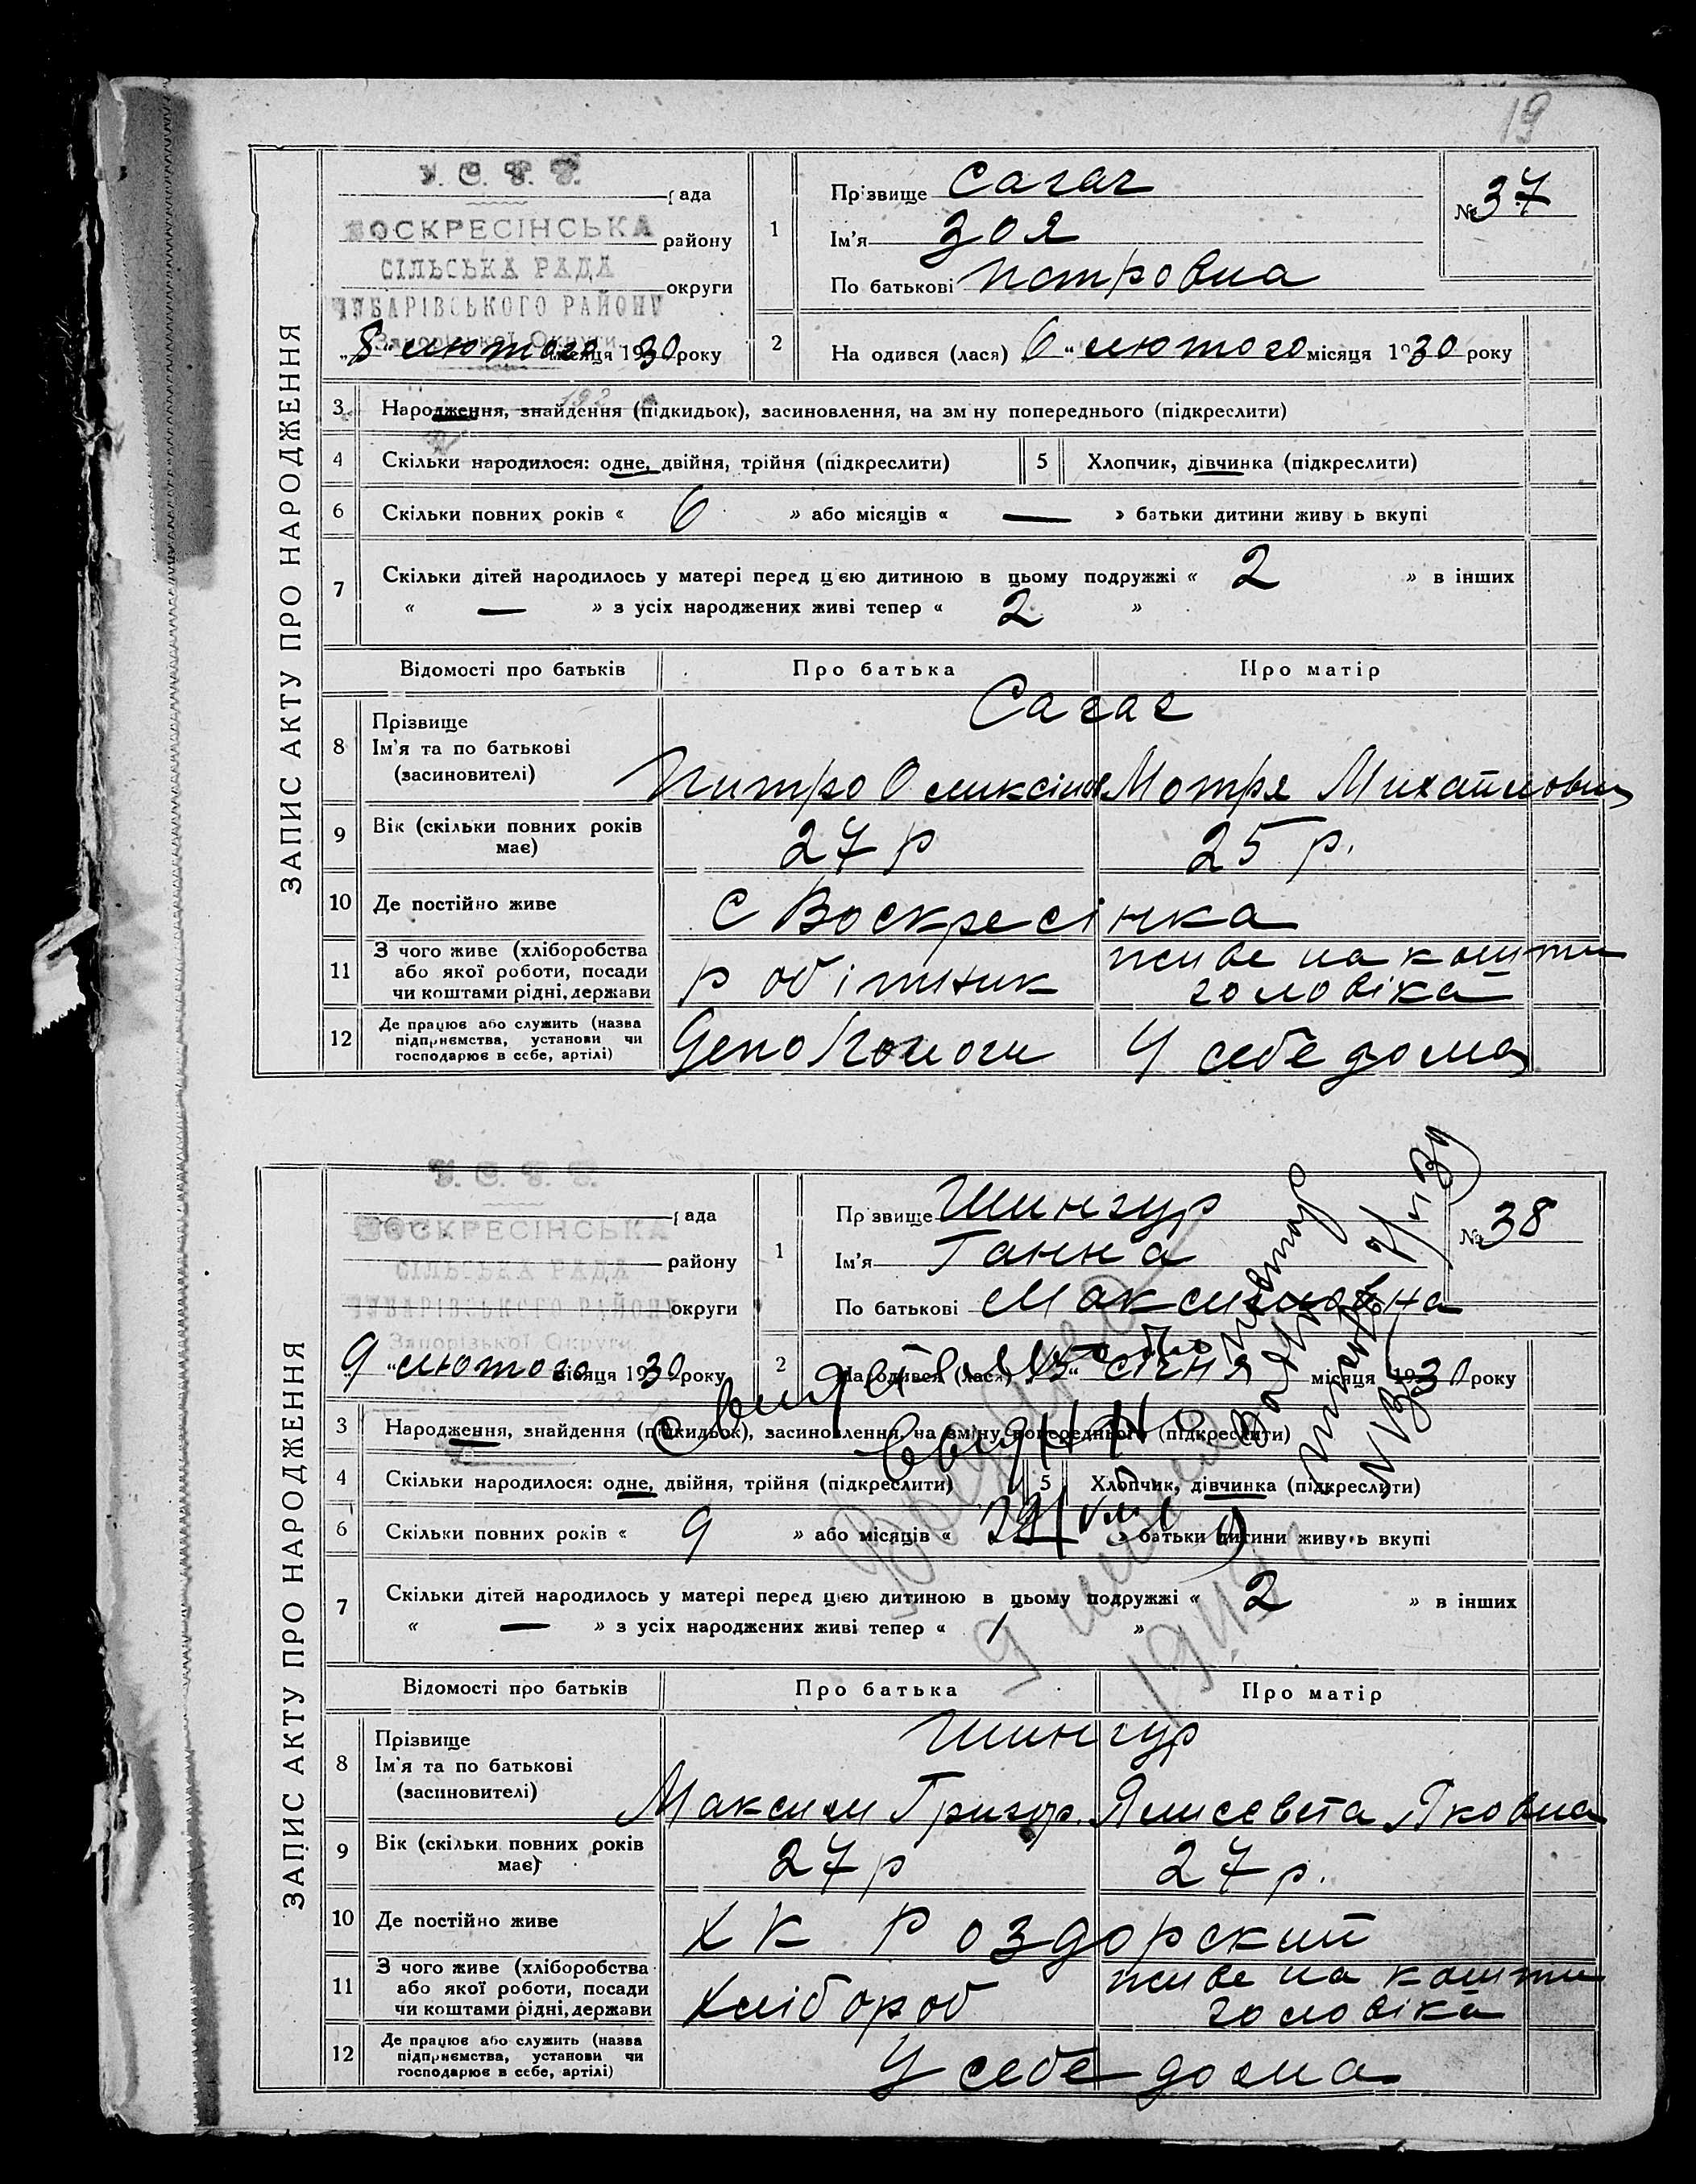 19
У. С. Р. Р.
рада
ВОСКРЕСІНСЬКА
району
СІЛЬСЬКА РАДА
округи
ЧУБАРІВСЬКОГО РАЙОНУ
Запорізької Округи
„8“ лютого місяця 1930 року
1
Прізвище Сагач
Ім'я Зоя
По батькові Петровна
№ 37
2
На одився (лася) 6 “ лютого місяця 1930 року
ЗАПИС АКТУ ПРО НАРОДЖЕННЯ
3 Народження, знайдення (підкидьок), засиновлення, на зм ну попереднього (підкреслити)
192
4 Скільки народилося: одне, двійня, трійня (підкреслити) 5 Хлопчик, дівчинка (підкреслити)
6 Скільки повних років « 6 » або місяців « — » батьки дитини живу ь вкупі
7 Скільки дітей народилось у матері перед цією дитиною в цьому подружжі « 2 » в інших
« — » з усіх народжених живі тепер « 2 »
Відомості про батьків Про батька Про матір
8 Прізвище
Ім'я та по батькові
(засиновителі)
Сагач
Питро Оликсіив Мотря Михайловна
9 Вік (скільки повних років
має)
27 р 25 р.
10 Де постійно живе С Воскресінка
11 З чого живе (хліборобства
або якої роботи, посади
чи коштами рідні, держави
робітник
живе на кошти
головіка
12 Де працює або служить (назва
підприємства, установи чи
господарює в себе, артілі)
Депо Пологи У себе дома
У. С. Р. Р.
рада
ВОСКРЕСІНСЬКА
району
СІЛЬСЬКА РАДА
округи
ЧУБАРІВСЬКОГО РАЙОНУ
Запорізької Округи
9 “ лютого місяця 1930 року
1
Пр звище Шингур
Ім'я Ганна
По батькові Максимовна
№ 38
2
Народився (лася) 13 “ січня місяця 1930 року
ЗАПИС АКТУ ПРО НАРОДЖЕННЯ
3 Народження, знайдення (підкидьок), засиновлення, на зміну попереднього (підкреслити)
4 Скільки народилося: одне, двійня, трійня (підкреслити) 5 Хлопчик, дівчинка (підкреслити)
6 Скільки повних років « 9 » або місяців « » батьки дитини живу ь вкупі
7 Скільки дітей народилось у матері перед цією дитиною в цьому подружжі « 2 » в інших
« — » з усіх народжених живі тепер « 1 »
Відомості про батьків Про батька Про матір
8 Прізвище
Ім'я та по батькові
(засиновителі)
Шингур
Максим Григор. Ялисевета Яковна
9 Вік (скільки повних років
має)
27 р 27 р.
10 Де постійно живе Х К Роздорский
11 З чого живе (хліборобства
або якої роботи, посади
чи коштами рідні, держави
Хлібороб
живе на кошти
головіка
12 Де працює або служить (назва
підприємства, установи чи
господарює в себе, артілі)
У себе дома